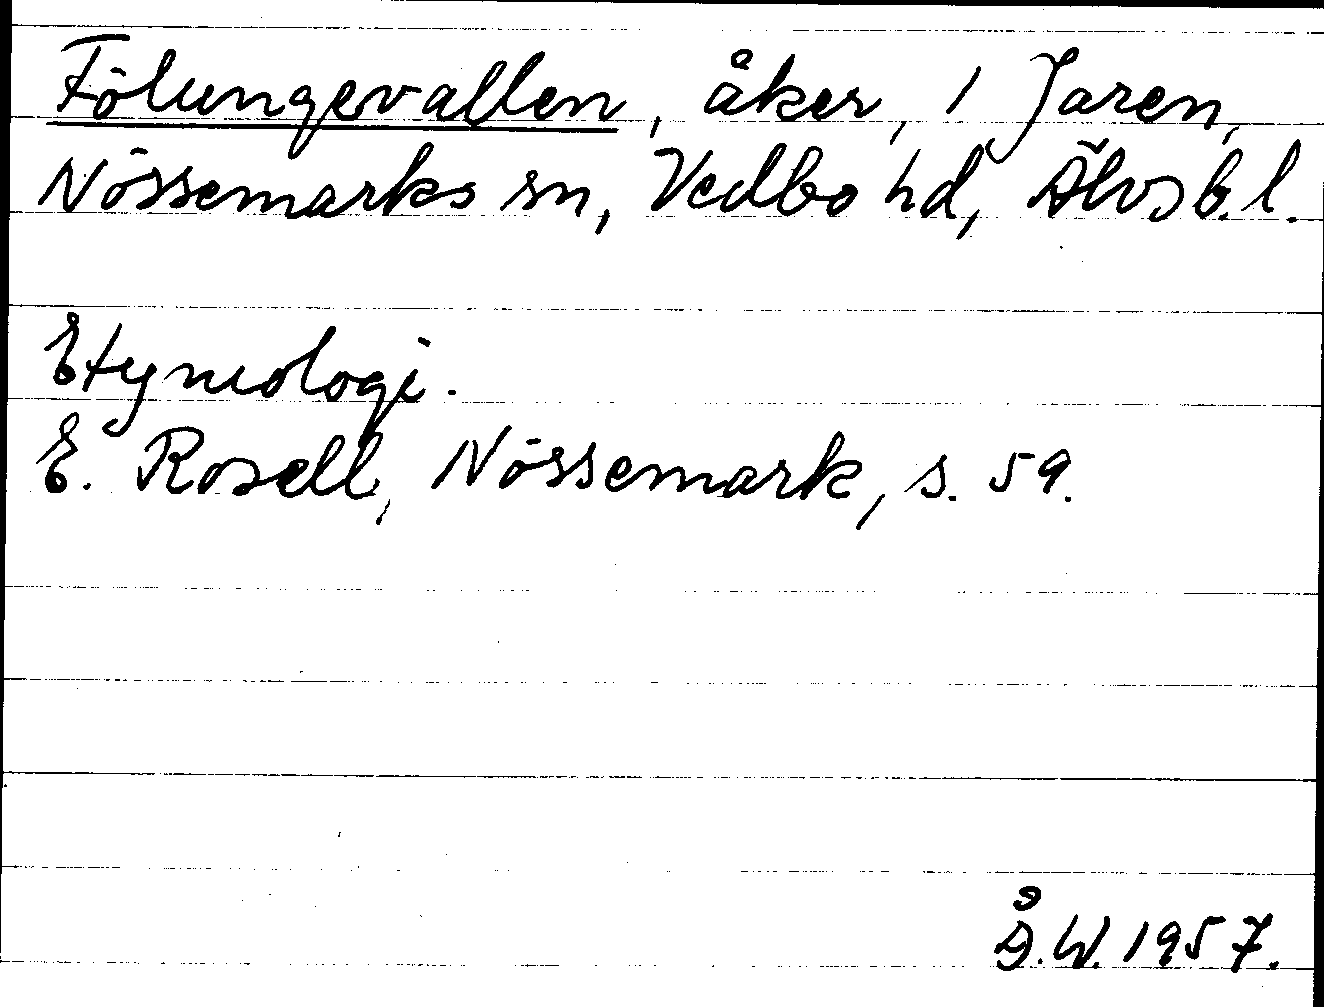 Fölungevallen, åker, 1 Jaren,
Nössemarks sn, Vedbo hd, Älvsb. l.
Etymologi.
E. Rosell, Nössemark, s. 59.
Å.W. 1957.